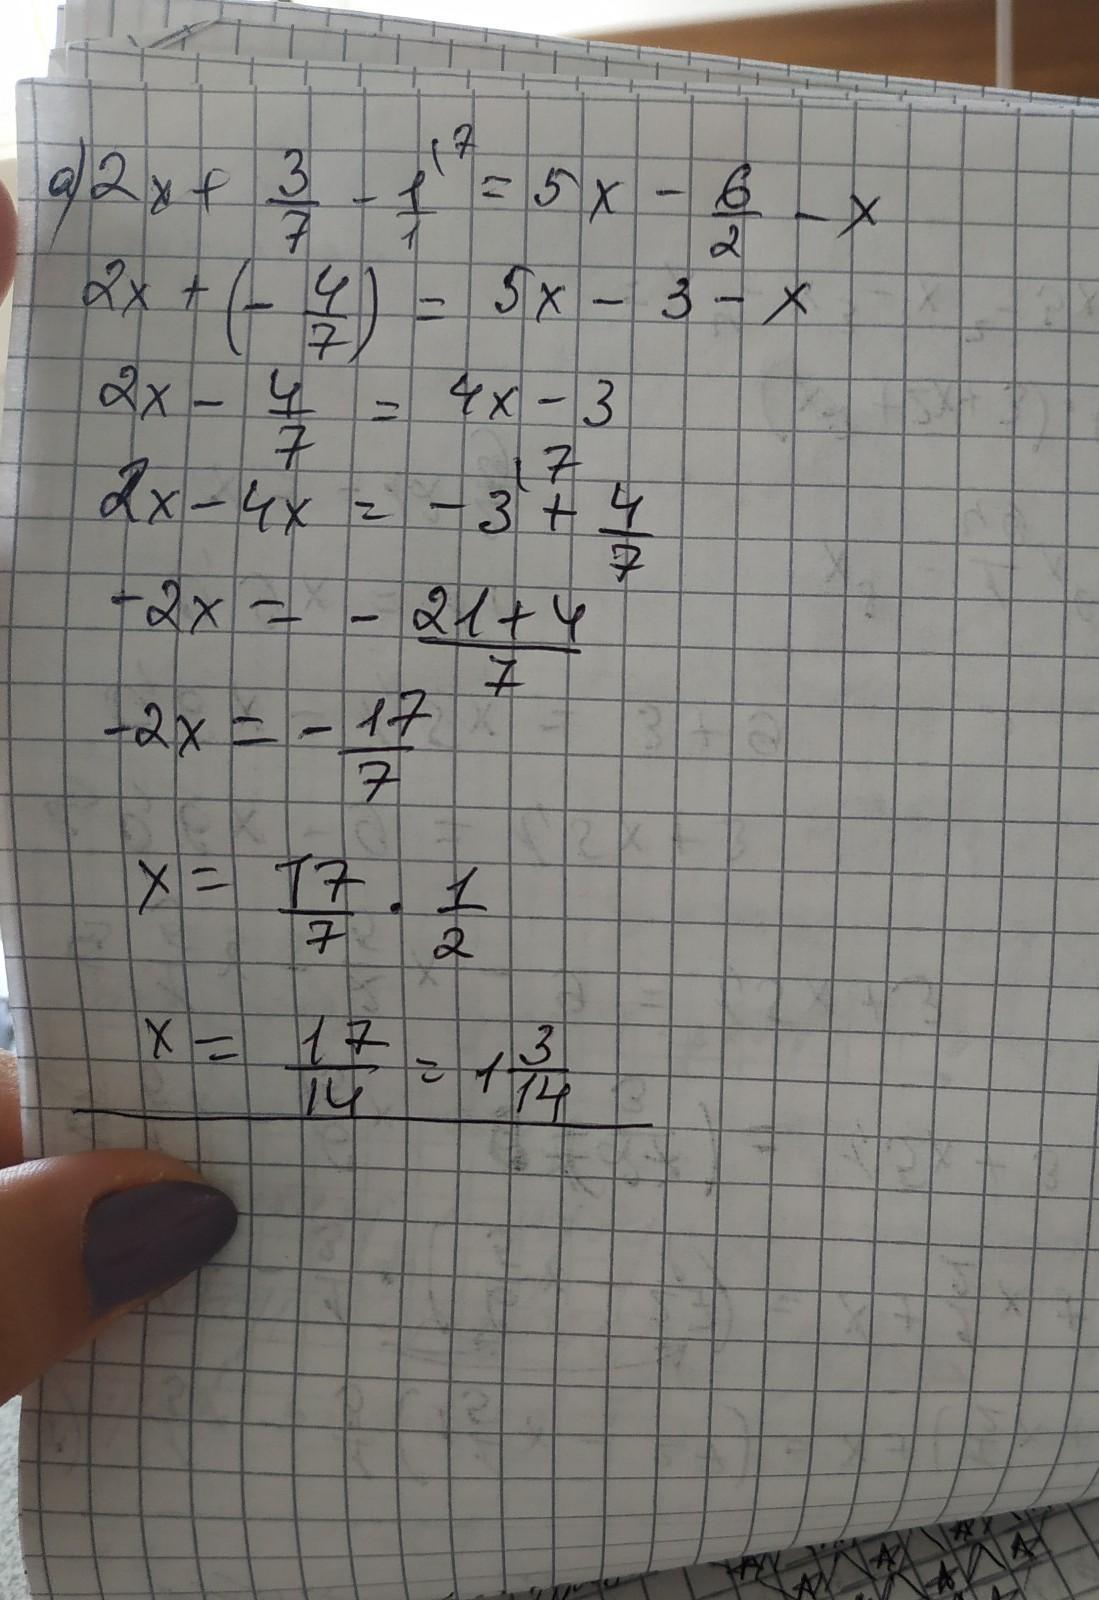 a) 2x + 3/7 - 1/1 (7 = 5x - 6/2 - x
2x + (- 4/7) = 5x - 3 - x
2x - 4/7 = 4x - 3
2x - 4x = - 3 (7 + 4/7
-2x = - 21+4/7
-2x = - 17/7
x = 17/7 · 1/2
x = 17/14 = 1 3/14